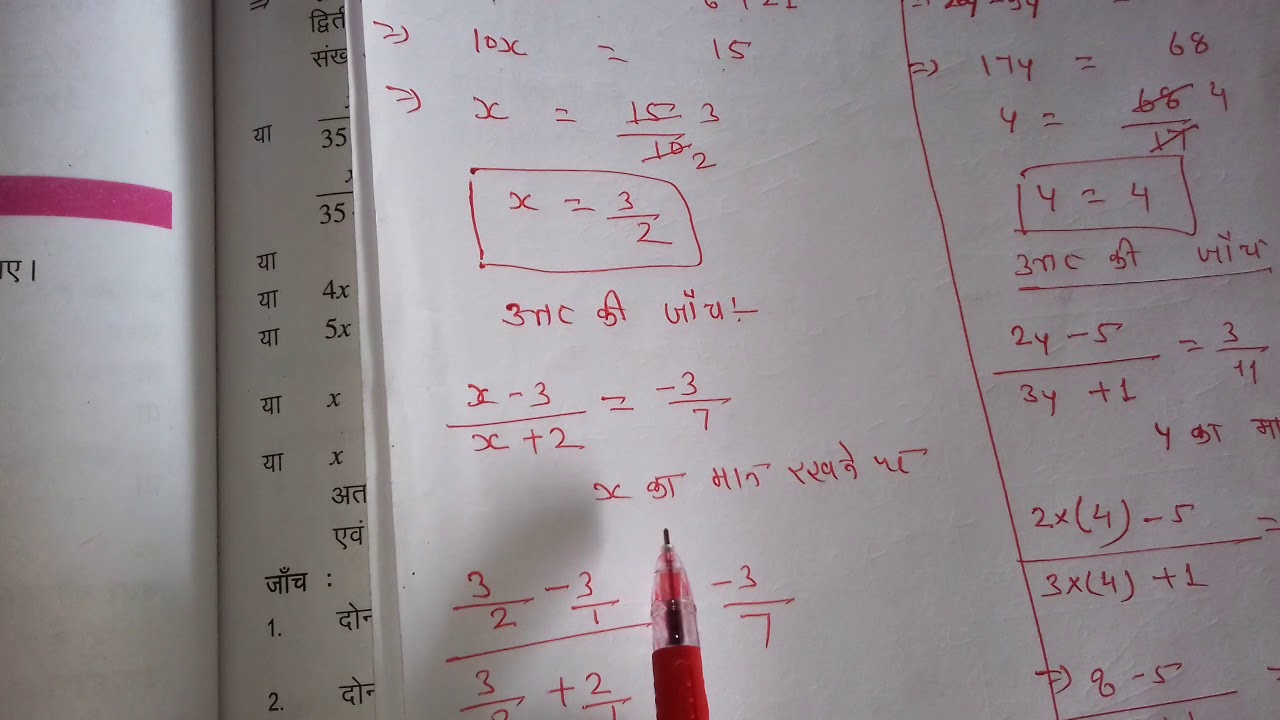 द्विती
संख
या
35
35
या
या 4x
या 5x
या x
या x
अत
एवं
जाँच :
1. दोन
2. दोन
ाए।
=> 10x = 15
=> x = 15 3
10 2
x = 3
2
उत्तर की जाँच:-
x - 3 = -3
x + 2 7
x का मान रखने पर
3 - 3 -3
2 1 7
3 + 2
1
=> 17y = 68
y = 68 4
17
y = 4
उत्तर की जाँच
2y - 5 = 3
3y + 1 11
y का मा
2×(4) - 5 =
3×(4) + 1
=> 8 - 5 =